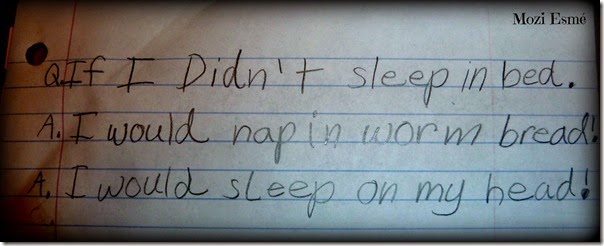 Mozi Esmé
Q.If I Didn't sleep in bed.
A. I would nap in worm bread!
A. I would sleep on my head!